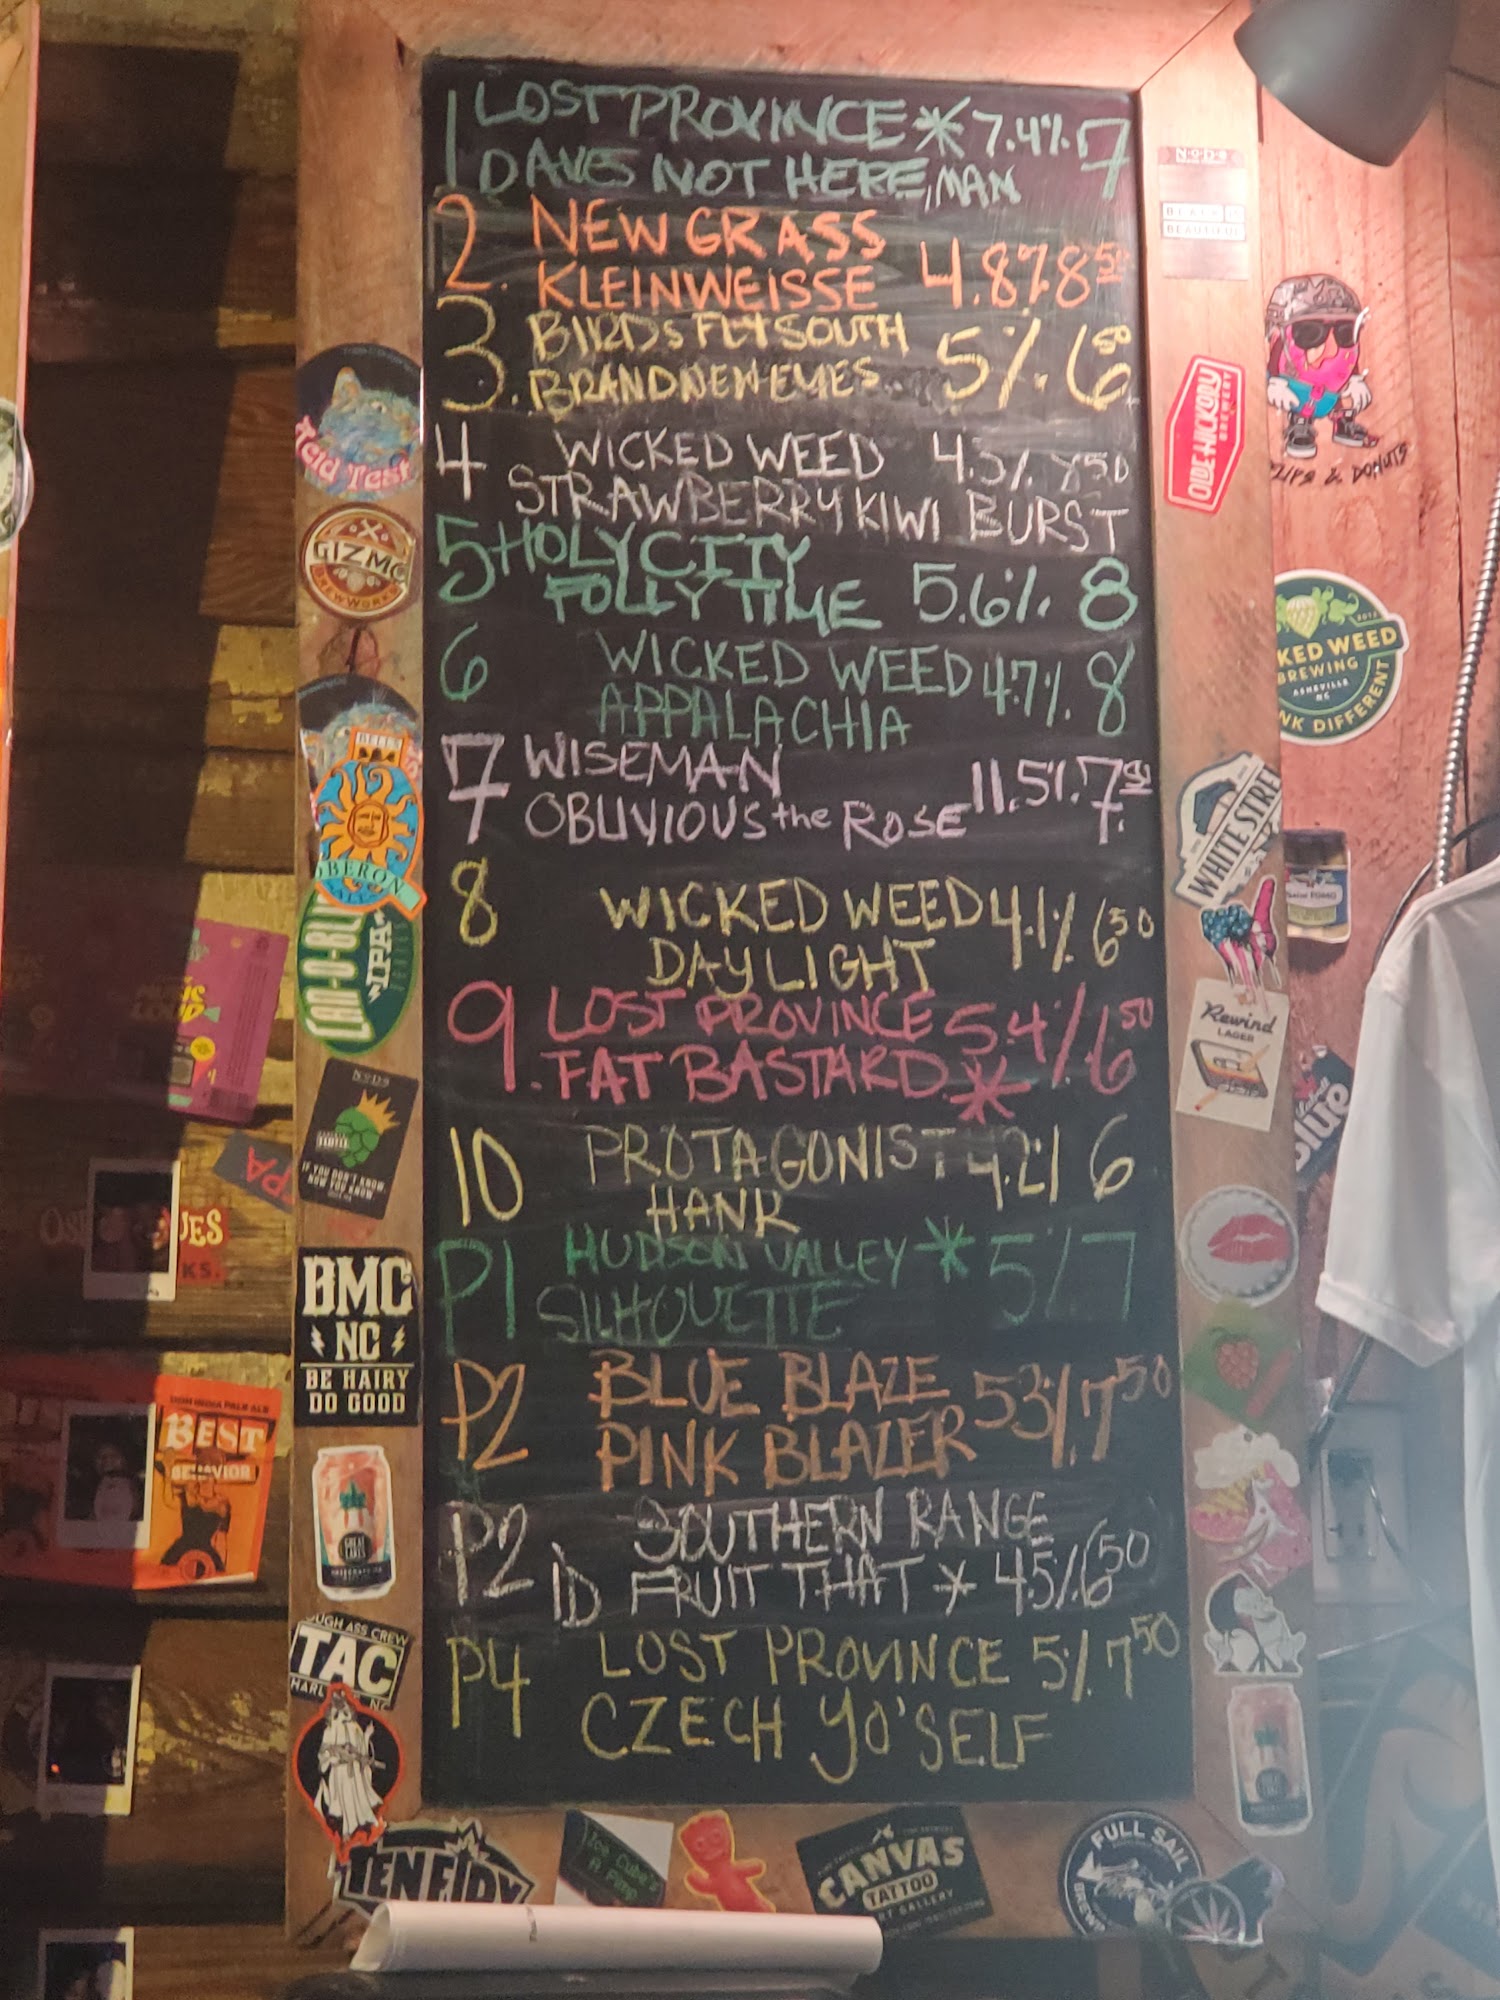 1 LOST PROVINCE * 7.4% 7
DAVES NOT HERE, MAN
2. NEW GRASS
KLEINWEISSE 4.8% 8 50
3. BIRDS FLY SOUTH 5% 6 50
BRAND NEW EYES
4 WICKED WEED 4.5% 50
STRAWBERRY KIWI BURST
5 HOLY CITY
FOLLY TIME 5.6% 8
6 WICKED WEED 4.7% 8
APPALACHIA
7 WISEMAN 11.5% 7
OBLIVIOUS the ROSE
8 WICKED WEED 4.1% 6 50
DAYLIGHT
9. LOST PROVINCE 5.4% 6 50
FAT BASTARD *
10 PROTAGONIST 4.2% 6
HANK
P1 HUDSON VALLEY * 5% 7
SILHOUETTE
P2 BLUE BLAZE 5.3% 7 50
PINK BLAZER
P2 SOUTHERN RANGE
ID FRUIT THAT * 4.5% 6 50
P4 LOST PROVINCE 5% 7 50
CZECH YO'SELF
Acid Test
GIZMO
BREWWORKS
BELL'S
OBERON
ALE
CAN-O-BLISS
IPA
NoDa
IF YOU DON'T KNOW,
NOW YOU KNOW
BMC
NC
BE HAIRY
DO GOOD
BEST
BEHAVIOR
GREAT LAKES
OUGH ASS CREW
TAC
NC
TEN FIDY
Ice Cube's
A Pimp
CANVAS
TATTOO
GALLERY
FULL SAIL
BREWIN
NoDa
BLACK IS
BEAUTIFUL
OLDE HICKORY
BREWERY
LIPS & DONUTS
2012
KED WEED
BREWING
ASHEVILLE
NC
NK DIFFERENT
WHITE STRE
Rewind
LAGER
Blue
JES
KS.
IPA